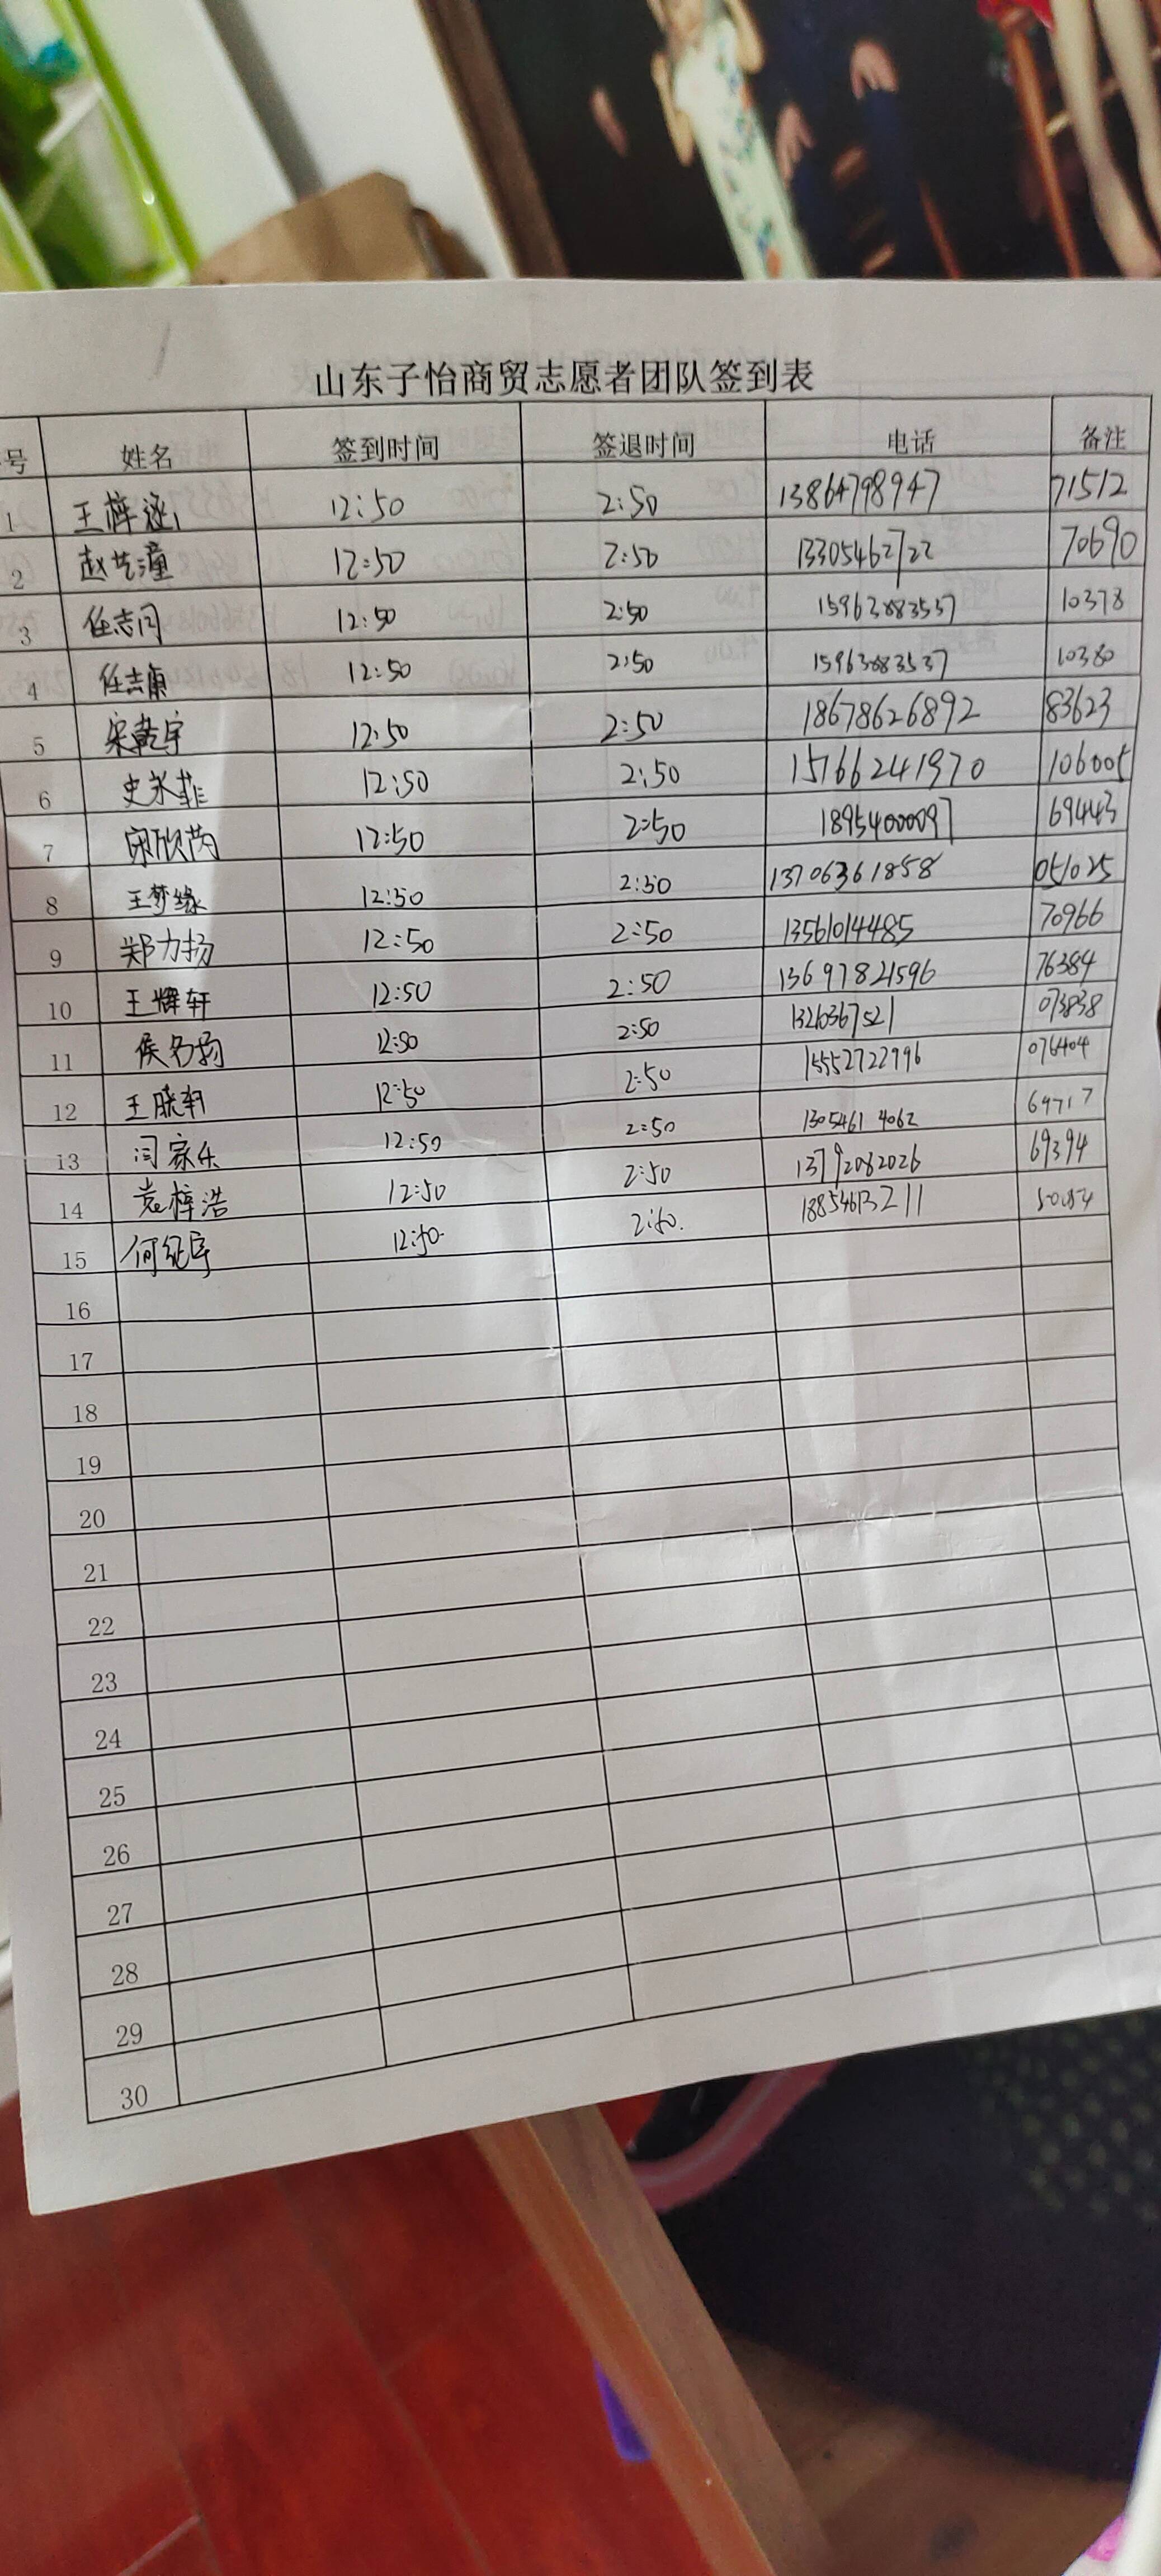 山东子怡商贸志愿者团队签到表
号 姓名 签到时间 签退时间 电话 备注
1 王梓涵 12:50 2:50 13864798947 71512
2 赵艺潼 12:50 2:50 13305462722 70690
3 任志闪 12:50 2:50 15963883537 10378
4 任志康 12:50 2:50 15963883537 10380
5 宋乾宇 12:50 2:50 18678626892 83623
6 史米菲 12:50 2:50 15766241970 106005
7 宋欣芮 12:50 2:50 18954000097 69443
8 王梦缘 12:50 2:50 13706361858 051025
9 郑力扬 12:50 2:50 13561014485 70966
10 王辉轩 12:50 2:50 13697821596 76384
11 侯名扬 12:50 2:50 13260367521 073838
12 王晓轩 12:50 2:50 15552722796 076404
13 闫家乐 12:50 2:50 1305461 4062 69717
14 袁梓浩 12:50 2:50 13792082026 69394
15 何纪宇 12:50 2:50 18854613211
16
17
18
19
20
21
22
23
24
25
26
27
28
29
30